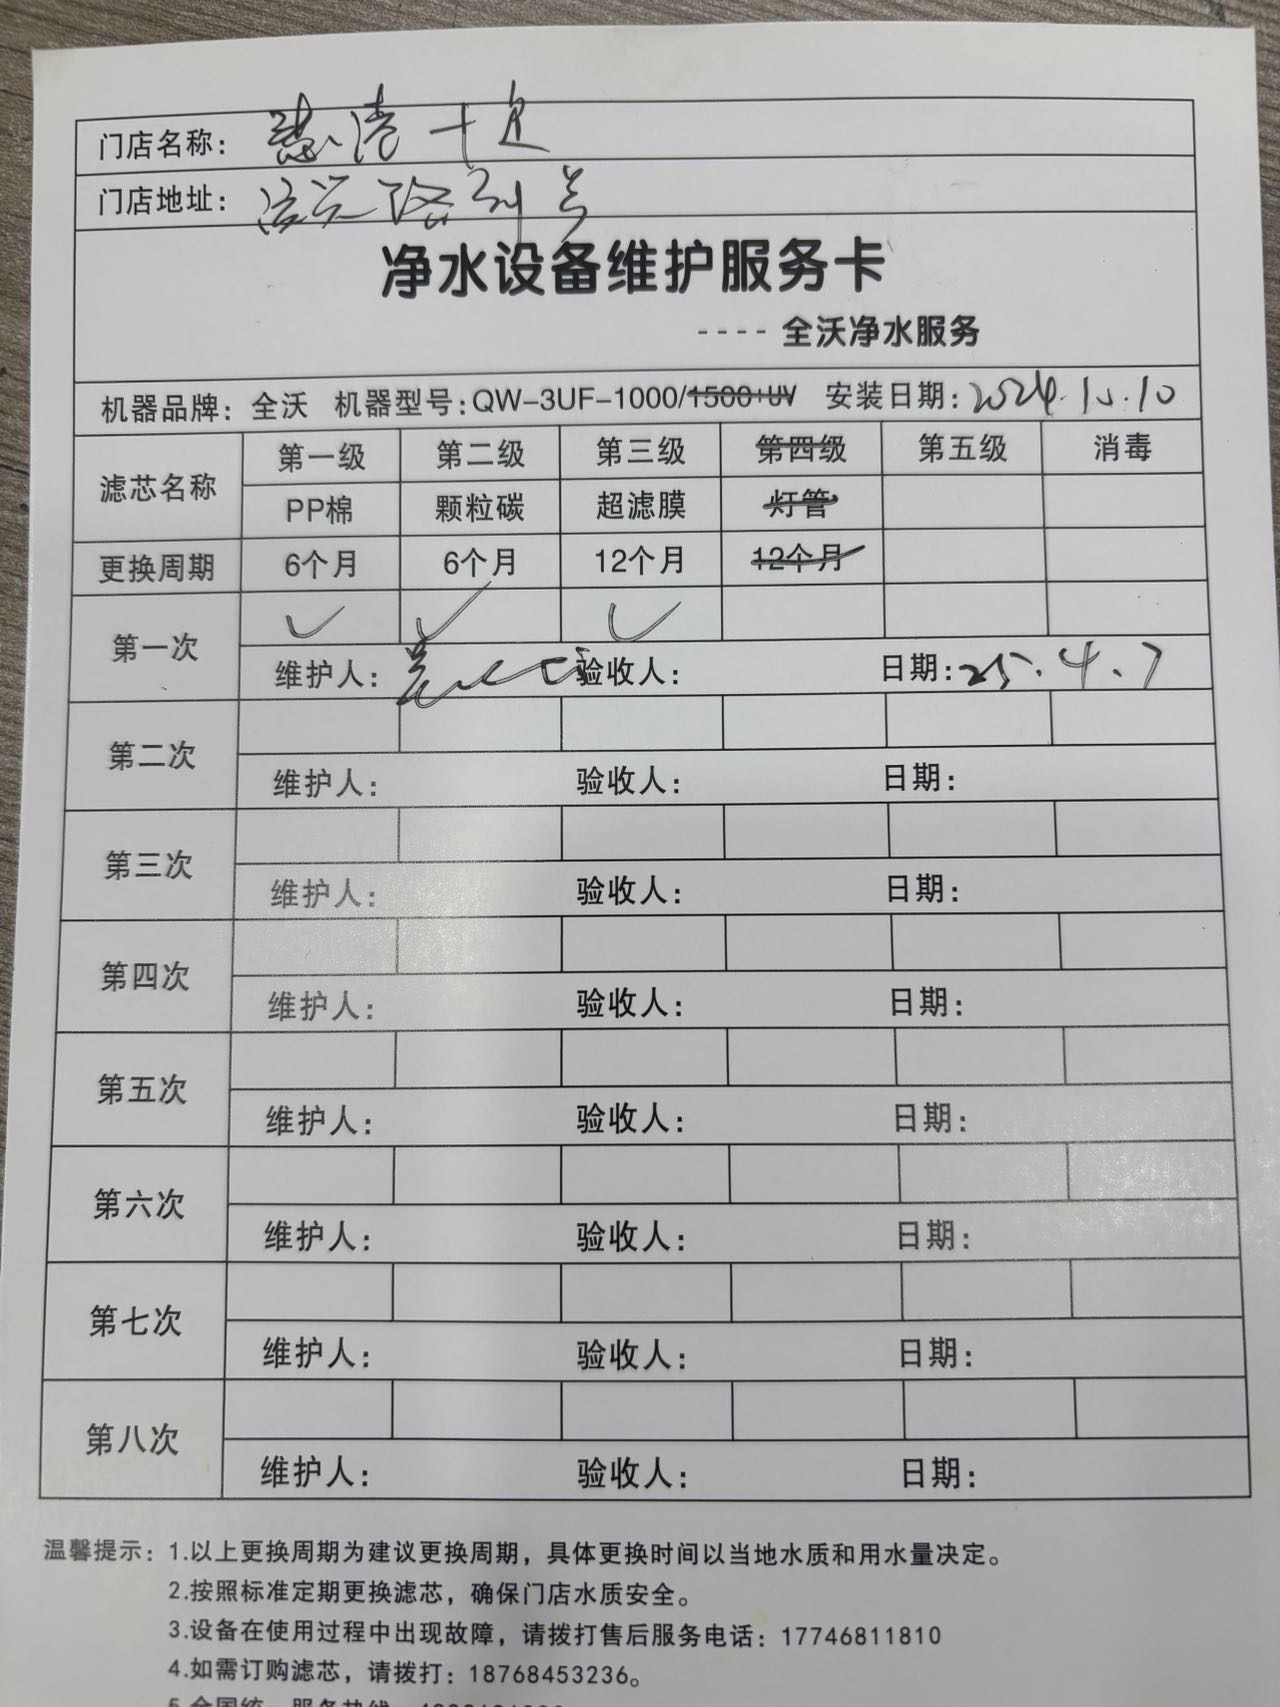 门店名称：
门店地址：
净水设备维护服务卡
---- 全沃净水服务
机器品牌：全沃 机器型号：QW-3UF-1000/1500+UV 安装日期：2024.10.10
滤芯名称 第一级 第二级 第三级 第四级 第五级 消毒
PP棉 颗粒碳 超滤膜 灯管
更换周期 6个月 6个月 12个月 12个月
第一次 ✓ ✓ ✓
维护人： 验收人： 日期：25.4.7
第二次
维护人： 验收人： 日期：
第三次
维护人： 验收人： 日期：
第四次
维护人： 验收人： 日期：
第五次
维护人： 验收人： 日期：
第六次
维护人： 验收人： 日期：
第七次
维护人： 验收人： 日期：
第八次
维护人： 验收人： 日期：
温馨提示：1.以上更换周期为建议更换周期，具体更换时间以当地水质和用水量决定。
2.按照标准定期更换滤芯，确保门店水质安全。
3.设备在使用过程中出现故障，请拨打售后服务电话：17746811810
4.如需订购滤芯，请拨打：18768453236。
5.全国统一服务热线